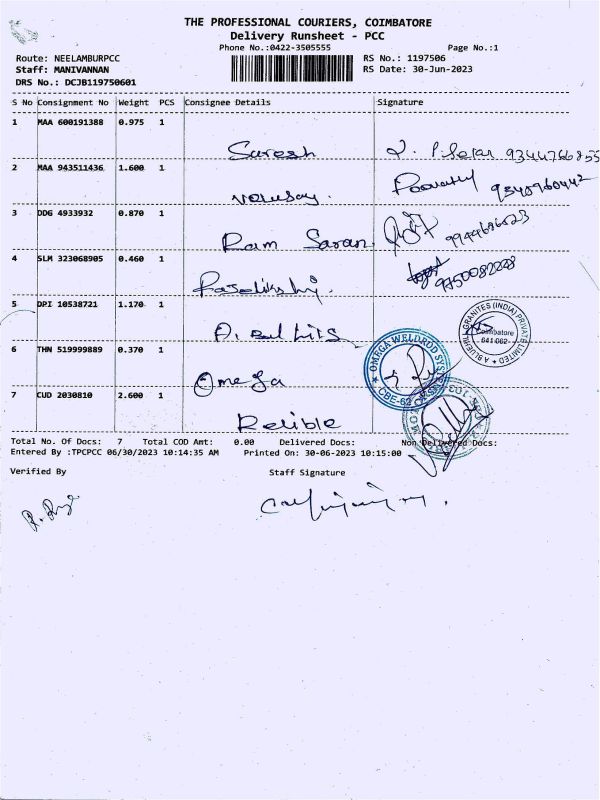 THE PROFESSIONAL COURIERS, COIMBATORE
Delivery Runsheet - PCC
Phone No.:0422-3505555 Page No.:1
Route: NEELAMBURPCC RS No.: 1197506
Staff: MANIVANNAN RS Date: 30-Jun-2023
DRS No.: DCJB119750601
S No Consignment No Weight PCS Consignee Details Signature
1 MAA 600191388 0.975 1
Suresh
2 MAA 943511436 1.600 1
3 DDG 4933932 0.870 1
Ram Saran
4 SLM 323068905 0.460 1
9750082228
5 DPI 10538721 1.170 1
A BLUEMINGRANITES (INDIA) PRIVATE LIMITED
Coimbatore
641 062
6 THN 519999889 0.370 1
Omega
OMEGA WELDROD
CBE-62
7 CUD 2030810 2.600 1
Relible
Total No. Of Docs: 7 Total COD Amt: 0.00 Delivered Docs: Non Delivered Docs:
Entered By :TPCPCC 06/30/2023 10:14:35 AM Printed On: 30-06-2023 10:15:00
Verified By Staff Signature